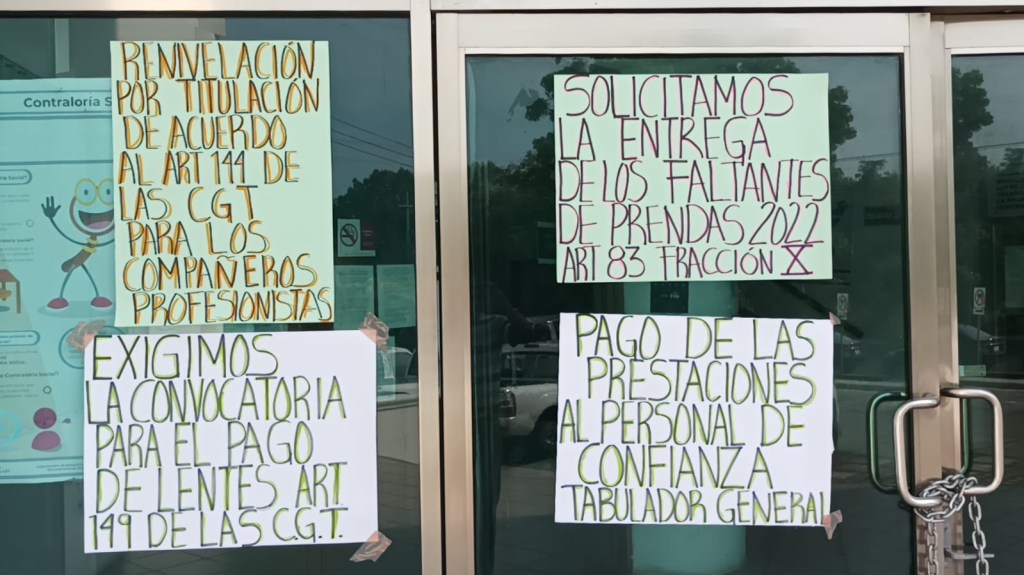 Contraloría S
RENIVELACIÓN
POR TITULACIÓN
DE ACUERDO
AL ART 144 DE
LAS CGT
PARA LOS
COMPAÑEROS
PROFESIONISTAS
EXIGIMOS
LA CONVOCATORIA
PARA EL PAGO
DE LENTES ART
149 DE LAS C.G.T.
SOLICITAMOS
LA ENTREGA
DE LOS FALTANTES
DE PRENDAS 2022
ART 83 FRACCIÓN X
PAGO DE LAS
PRESTACIONES
AL PERSONAL DE
CONFIANZA
TABULADOR GENERAL